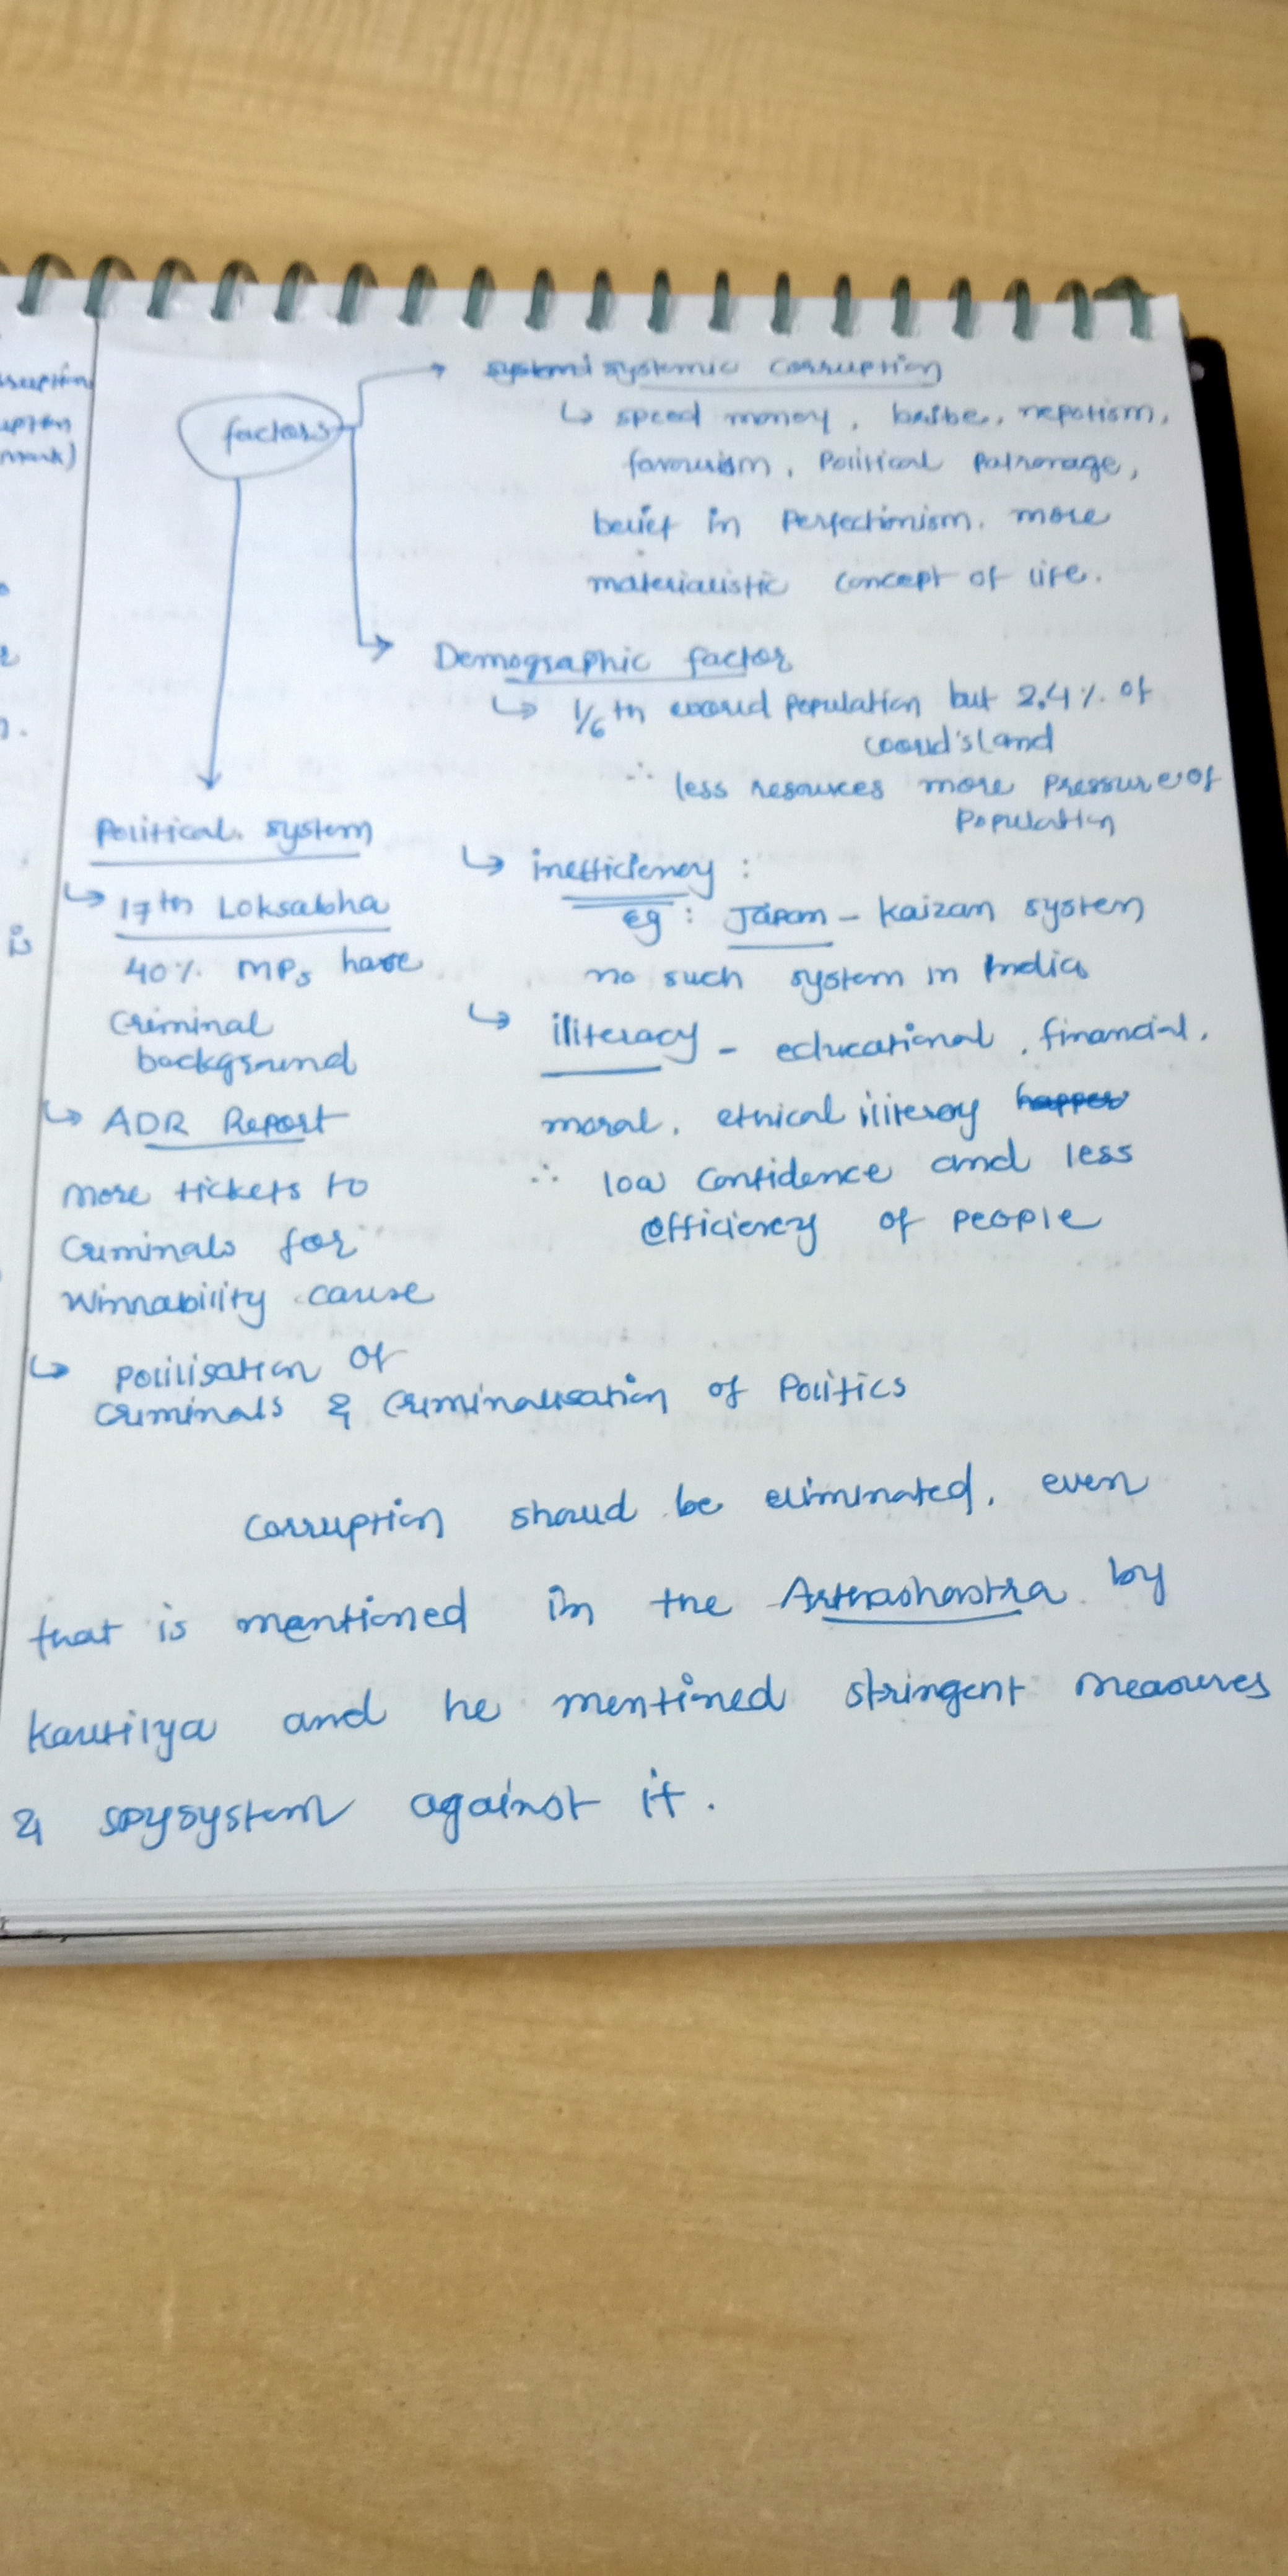 factors
systemic corruption
↳ speed money, bribe, nepotism,
favourism, Political Patronage,
belief in Perfectimism, more
materialistic concept of life.
Demographic factor
↳ 1/6th world population but 2.4% of
world's land
∴ less resources more pressure of
population
↳ inefficiency :
eg : Japan - Kaizan system
no such system in India
↳ iliteracy - educational, financial,
moral, ethical iliteracy
∴ low confidence and less
efficiency of people
Political system
↳ 17th Loksabha
40% MPs have
Criminal
background
↳ ADR Report
more tickets to
Criminals for
Winnability cause
↳ polilisation of
criminals & criminalisation of Politics
Corruption should be eliminated, even
that is mentioned in the Arthashastra by
Kautilya and he mentioned stringent measures
& spysystem against it.